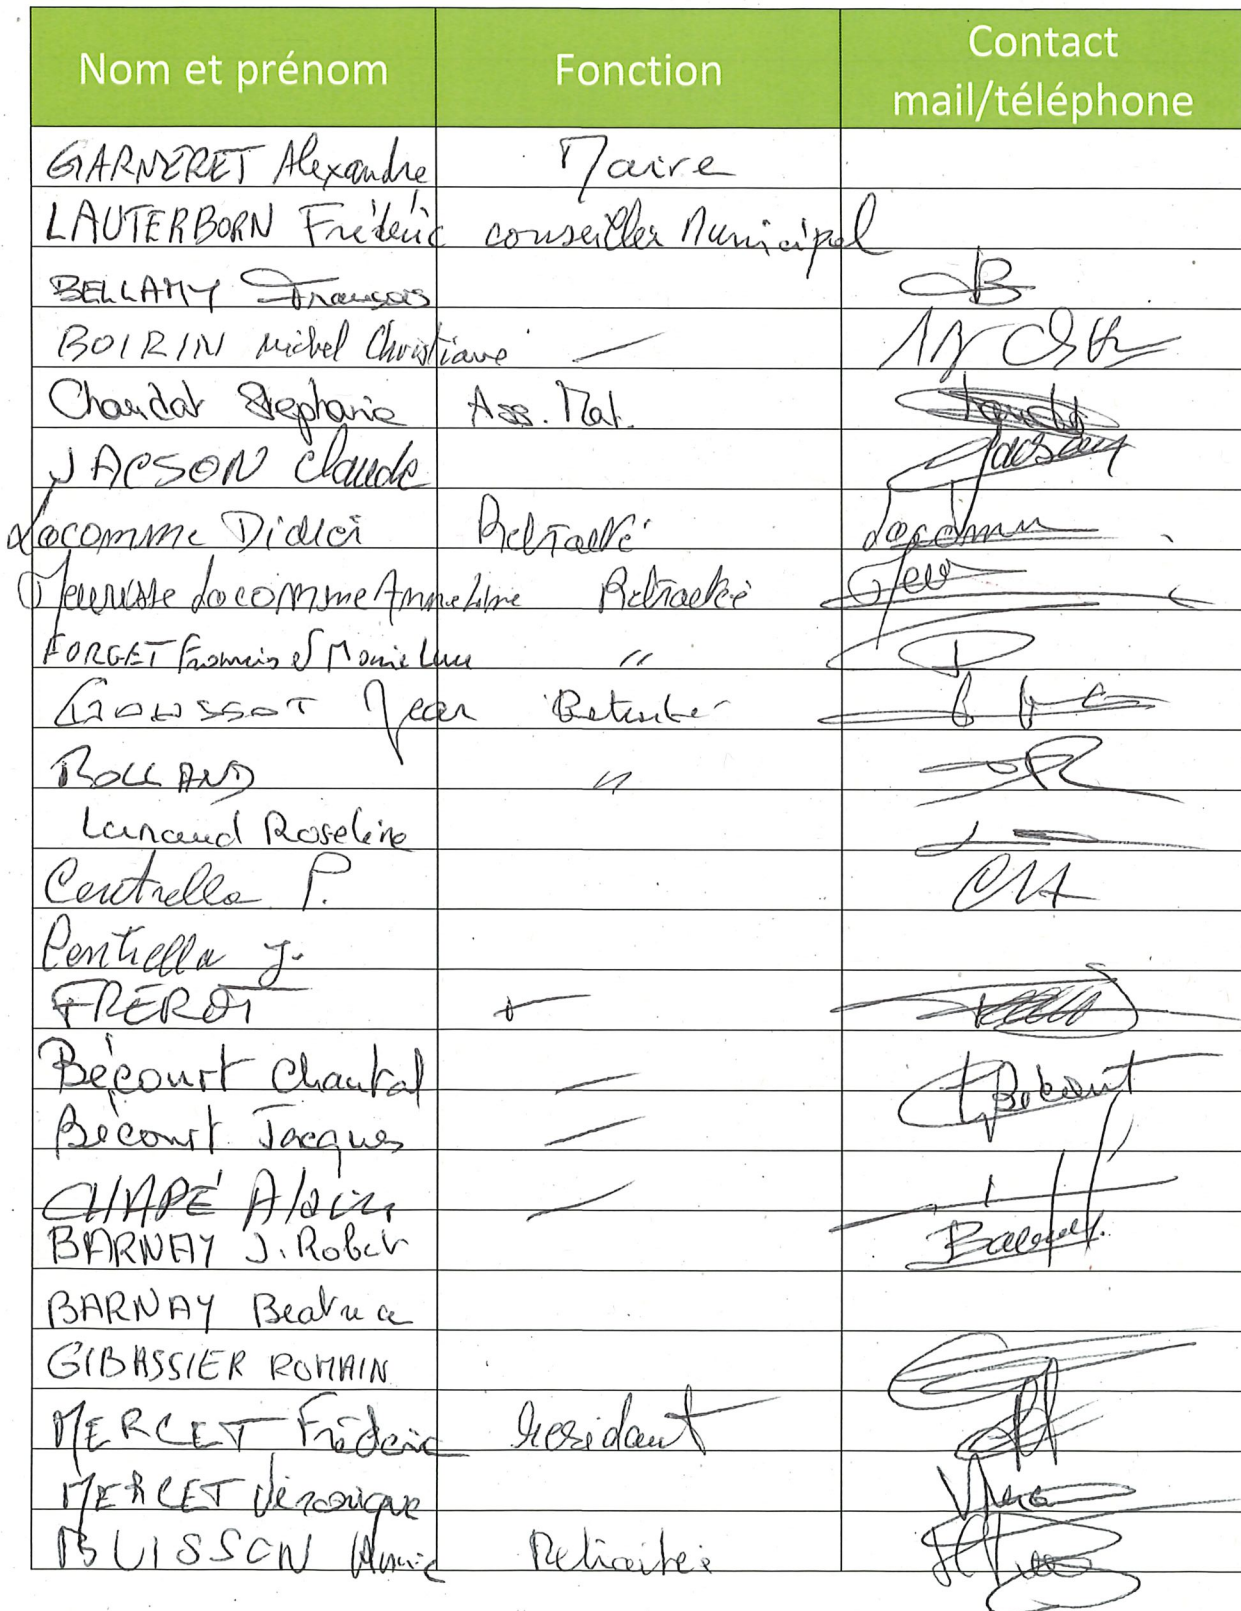 Nom et prénom Fonction Contact mail/téléphone
GARNERET Alexandre Maire
LAUTERBORN Fréderic conseiller Municipal
BELLAMY François B
BOIRIN Michel Christiane —
Chaudat Stephanie Ass. Mat.
JACSON Claude Jacson
Locomme Didier Retraité Locomme
Locomme Anne Retraitée
FORGET Francis et Marie Luce "
Jean Retraité
ROLLAND "
Lanaud Roseline
Centrella P.
Centrella J.
FREROT
Bécourt Chantal — Bécourt
Bécourt Jacques —
CHAPÉ Alain —
BARNAY J. Robert Barnay
BARNAY Beatrice
GIBASSIER ROMAIN
MERCET Fréderic Residant
MERCET Véronique
BUISSON Annie Retraitée